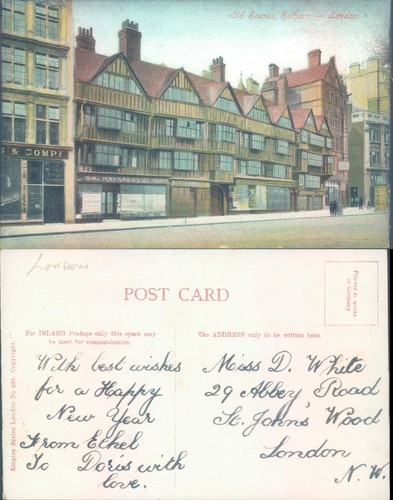 Old Houses, Holborn — London.
S & COMPY
MAYNARDS
London
POST CARD
Printed at works
in Germany
For INLAND Postage only this space may
be used for communication.
The ADDRESS only to be written here.
Empire Series London No. 
Copyright.
With best wishes
for a Happy
New Year
From Ethel
To Doris with
love.
Miss D. White
29 Abbey Road
St. Johns Wood
London
N. W.